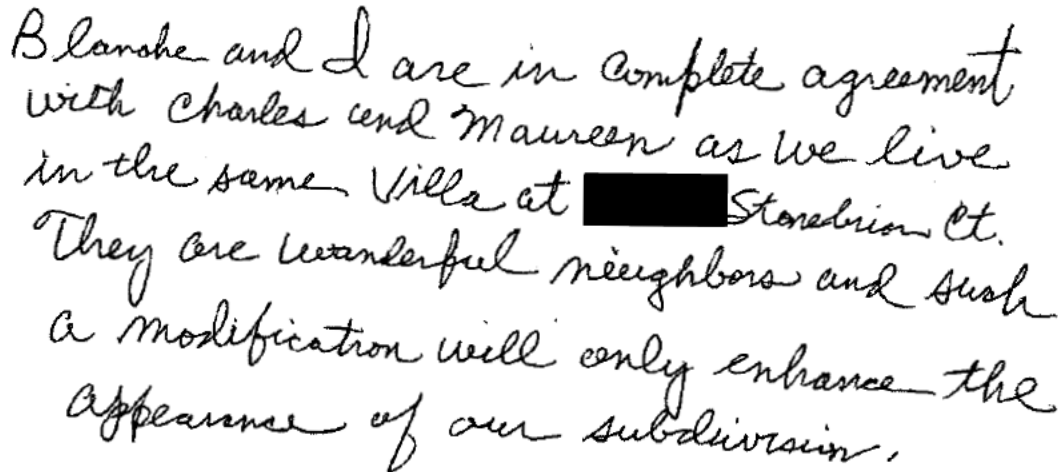 Blanche and I are in complete agreement
with Charles and Maureen as we live
in the same Villa at Stonebriar Ct.
They are wonderful neighbors and such
a modification will only enhance the
appearance of our subdivision.